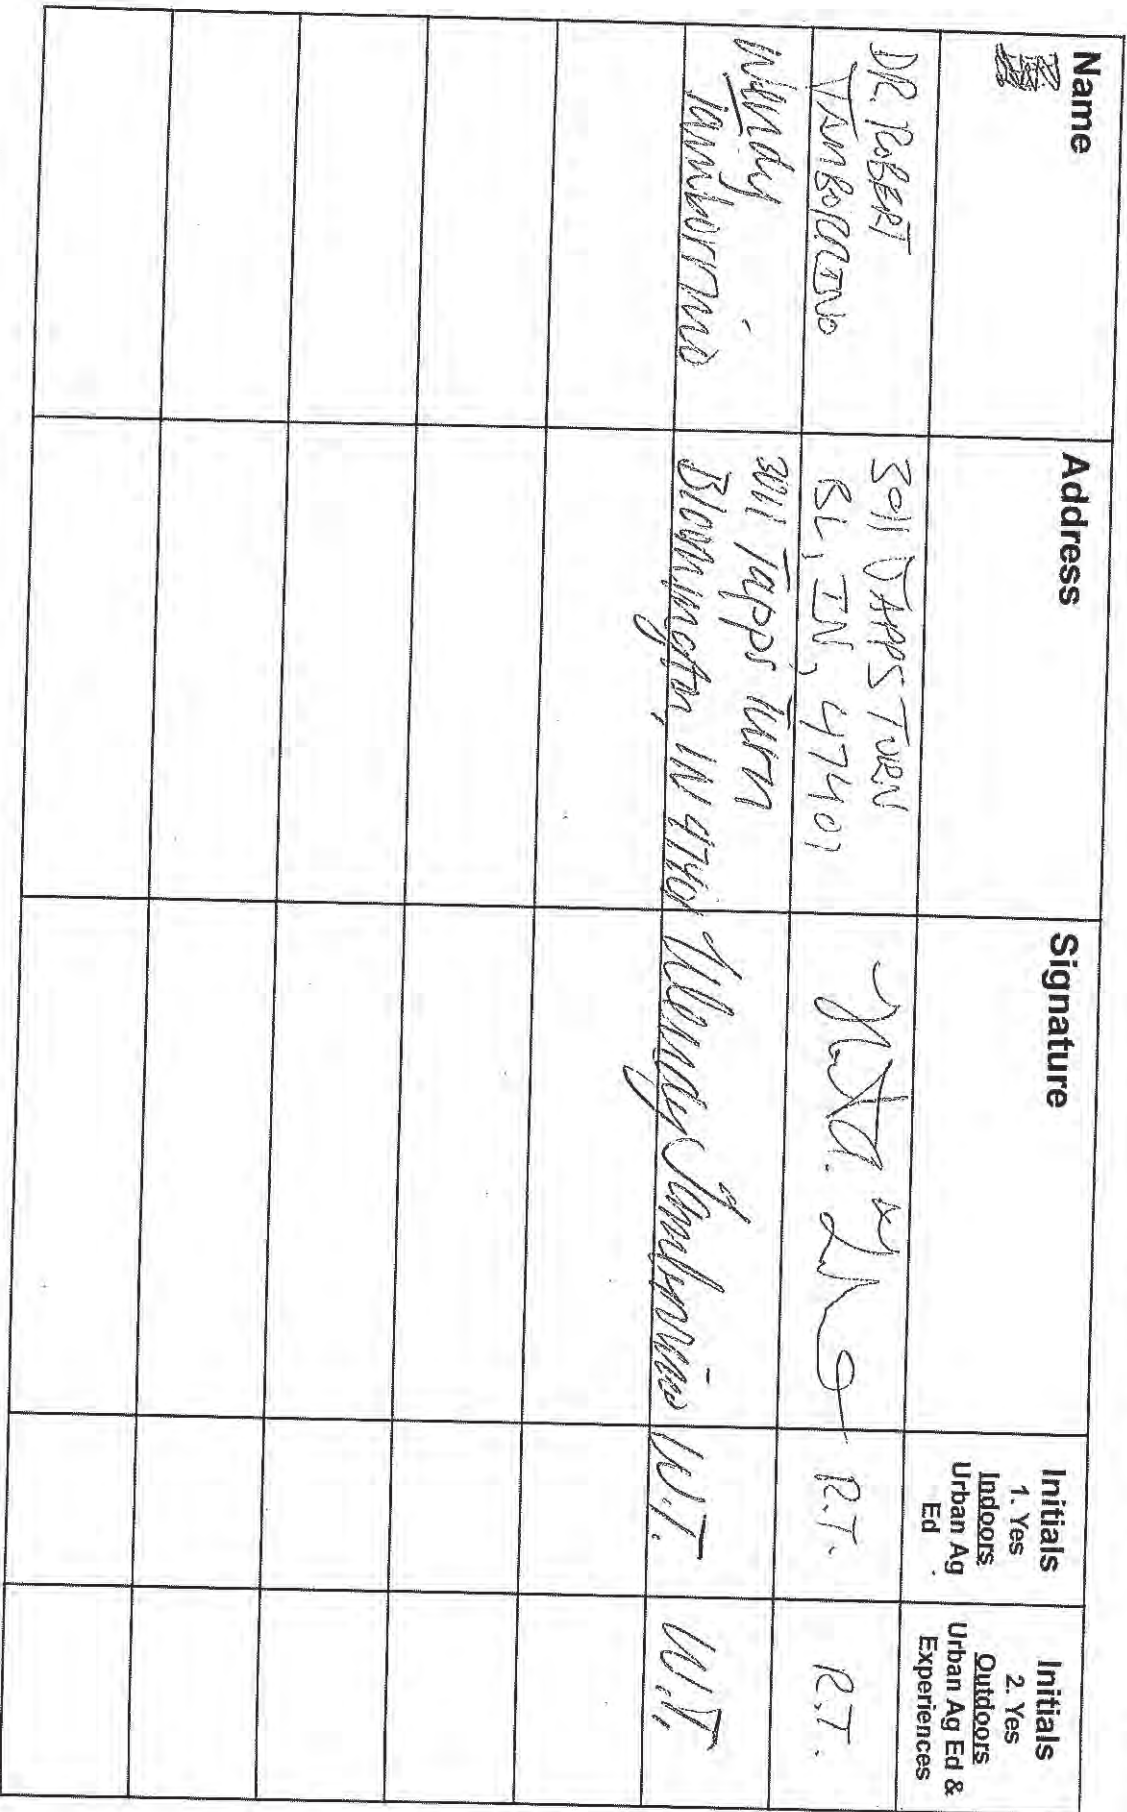 Name
Address
Signature
Initials
1. Yes
Indoors
Urban Ag
Ed
Initials
2. Yes
Outdoors
Urban Ag Ed &
Experiences
DR. ROBERT
TAMBORRINO
3011 TAPPS TURN
BL, IN, 47401
R.T.
R.T.
Wendy
Tamborrino
3011 Tapps Turn
Bloomington, IN 47401
Wendy Tamborrino
W.T.
W.T.